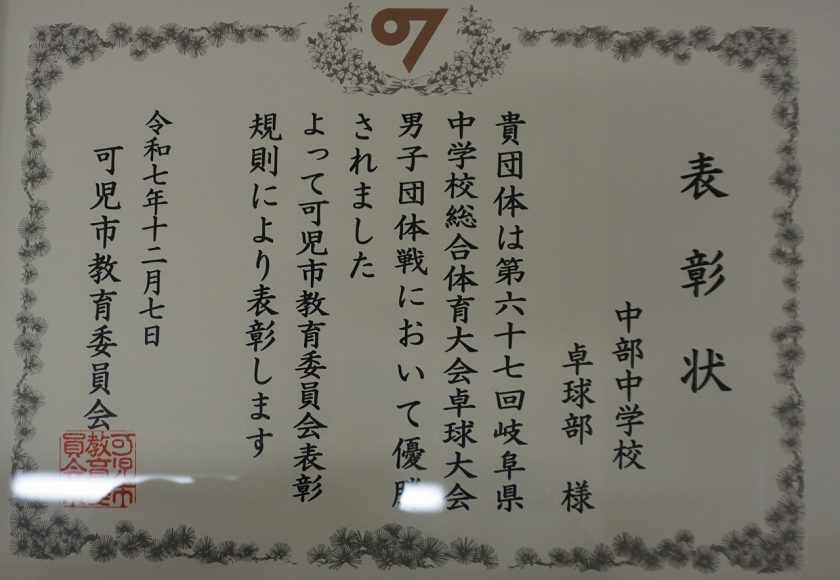 表彰状
中部中学校
卓球部 様
貴団体は第六十七回岐阜県
中学校総合体育大会卓球大会
男子団体戦において優勝
されました
よって可児市教育委員会表彰
規則により表彰します
令和七年十二月七日
可児市教育委員会
可児市
教育委
員会